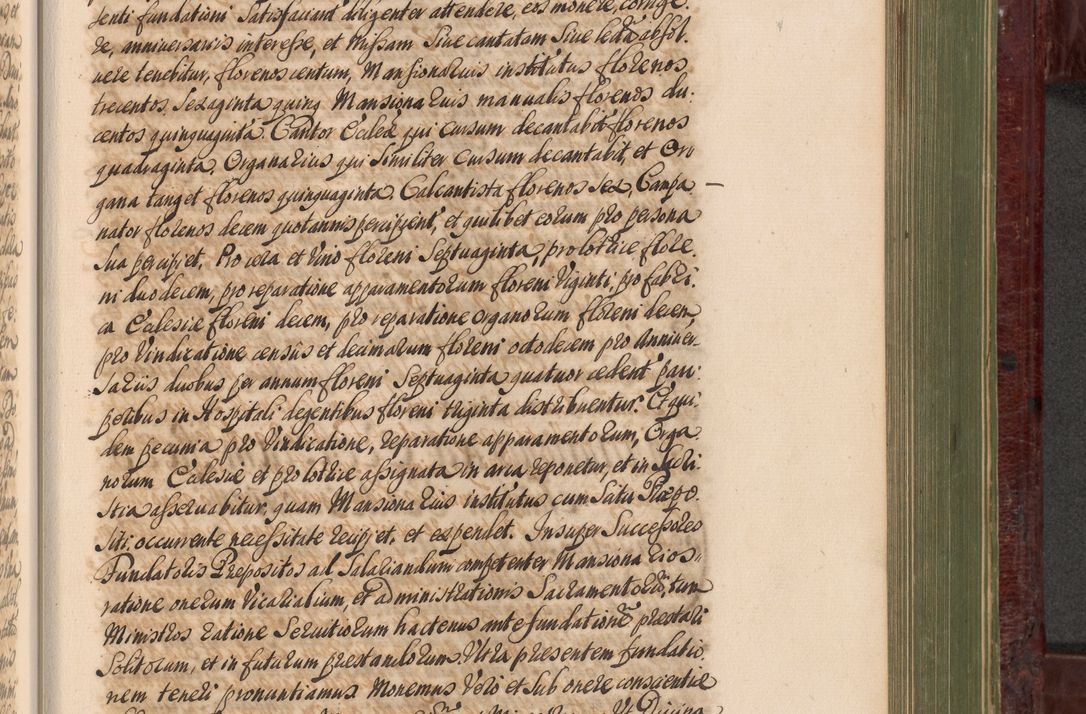 senti fundationi Satisfaciant diligenter attendere, eos monere, corrige-
re, anniversariis interesse, et Missam Sive cantatam Sive lectā absol.
vere tenebitur, florenos centum, Mansionarius institutus florenos
trecentos Sexaginta quinq Mansionarius manualis florenos du-
centos quinquaginta. Cantor Ecclesiæ qui cursum decantabit florenos
quadraginta, Organarius qui Similiter cursum decantabit, et Or-
gana tanget florenos quinquaginta. Calcantista florenos Sex, Campa
nator florenos decem quotannis percipient, et quilibet eorum pro persona
Sua percipiet. Pro cera et vino floreni Septuaginta, pro lotrice flore.
ni duodecim, pro reparatione apparamentorum floreni Viginti, pro fabri-
ca Ecclesiæ floreni decem, pro reparatione organorum floreni decem,
pro Vindicatione censûs et decimarum floreni octodecem pro Anniver-
Sariis duobus per annum floreni Septuaginta quatuor cedent pau-
peribus in Hospitali degentibus floreni triginta distribuentur. Et qui-
dem pecunia pro Vindicatione, reparatione apparamentorum, Orga
norum Ecclesiæ et pro lotrice assignata in arca reponetur, et in Sacri-
stia asservabitur, quam Mansionarius institutus cum Scitu Præpo.
siti, occurrente necessitate recipiet, et expendet. Insuper Successores
Fundatoris Præpositos ad Salariandum competenter Mansionarios
ratione onerum Vicarialium, et administrationis Sacramentorū, tum
Ministros ratione Servitiorum hactenus ante fundationē præstari
Solitorum, et in futurum præstandorum. Ultra præsentem fundatio
nem teneri pronuntiamus. Monemus Vero et Sub onere conscientiæ